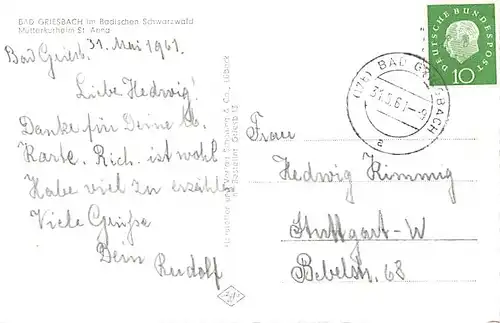 BAD GRIESBACH im Badischen Schwarzwald
Mütterkurheim St. Anna
Bad Griesb. 31. Mai 1961.
Liebe Hedwig!
Danke für Deine lb.
Karte. Rich. ist wohl
Habe viel zu erzählen
Viele Grüße
Dein Rudolf
DEUTSCHE BUNDESPOST
10
(17b) BAD GRIESBACH
31.5.61-9
a
Frau
Hedwig Kimmig
Stuttgart-W
Bebelstr. 68